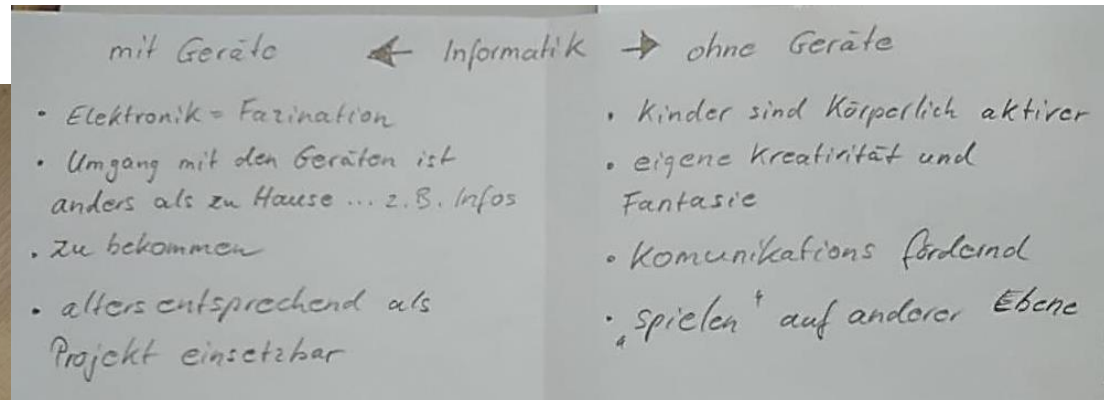 mit Geräte ← Informatik → ohne Geräte
• Elektronik = Fazination
• Umgang mit den Geräten ist
anders als zu Hause ... z.B. Infos
• zu bekommen
• altersentsprechend als
Projekt einsetzbar
• Kinder sind Körperlich aktiver
• eigene Kreativität und
Fantasie
• Komunikations fördernd
• „spielen“ auf anderer Ebene